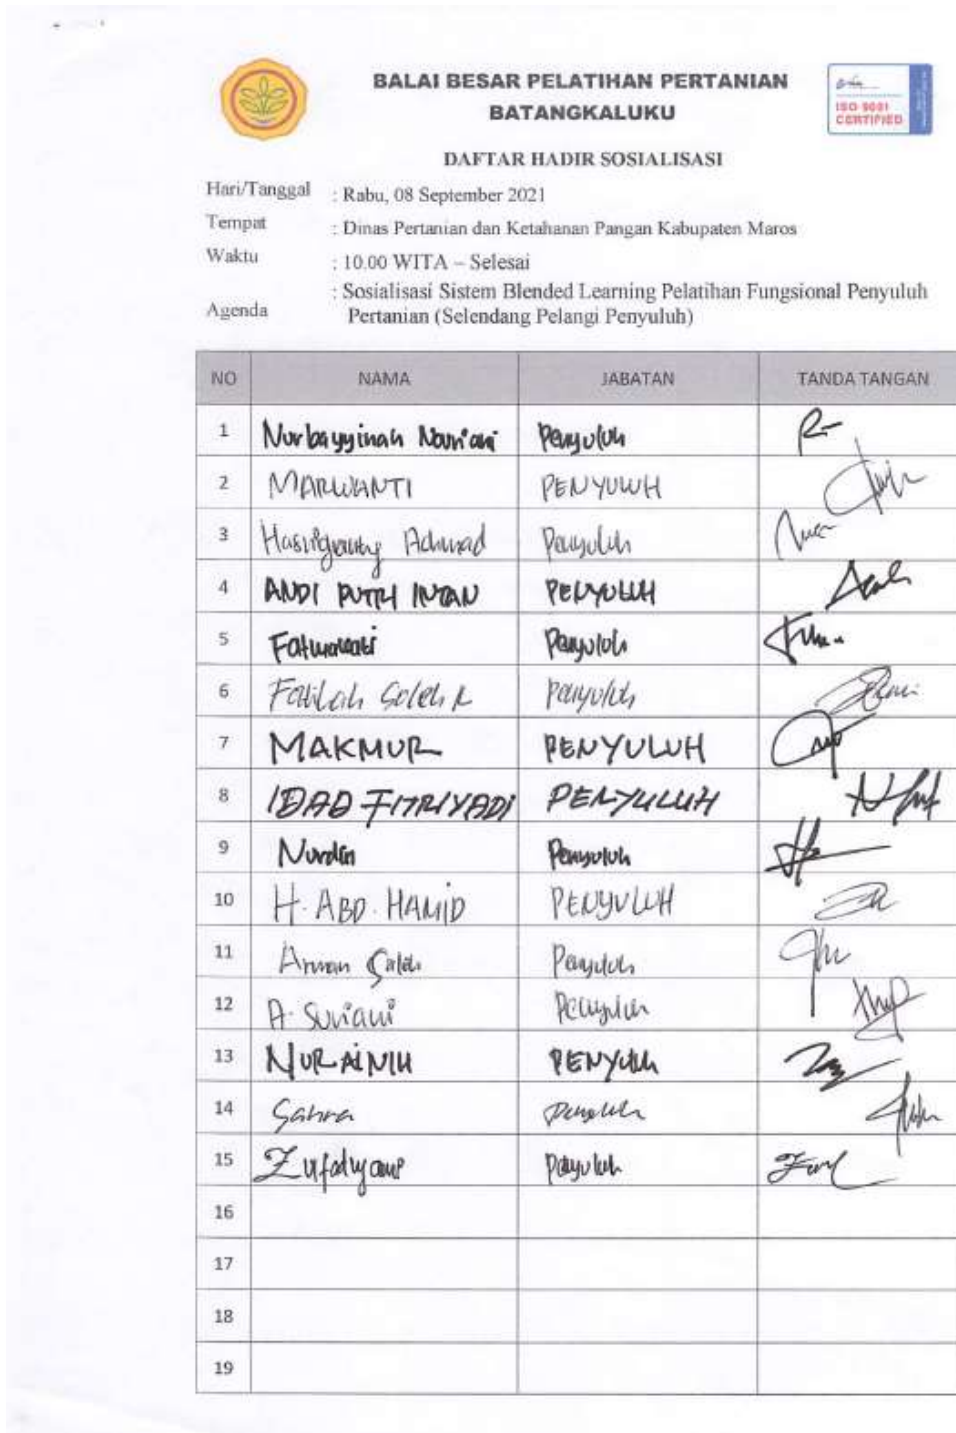 BALAI BESAR PELATIHAN PERTANIAN
BATANGKALUKU
ISO 9001
CERTIFIED
DAFTAR HADIR SOSIALISASI
Hari/Tanggal : Rabu, 08 September 2021
Tempat : Dinas Pertanian dan Ketahanan Pangan Kabupaten Maros
Waktu : 10.00 WITA – Selesai
Agenda : Sosialisasi Sistem Blended Learning Pelatihan Fungsional Penyuluh
Pertanian (Selendang Pelangi Penyuluh)
NO NAMA JABATAN TANDA TANGAN
1 Nurbayyinah Penyuluh
2 MARWANTI PENYULUH
3 Achmad Penyuluh
4 ANDI PUTRI INTAN PENYULUH
5 Fatmawati Penyuluh
6 Saleh Penyuluh
7 MAKMUR PENYULUH
8 FITRIYADI PENYULUH
9 Nurdin Penyuluh
10 H. ABD. HAMID PENYULUH
11 Arman Saleh Penyuluh
12 A. Suriani Penyuluh
13 PENYULUH
14 Sahra Penyuluh
15 Penyuluh
16
17
18
19